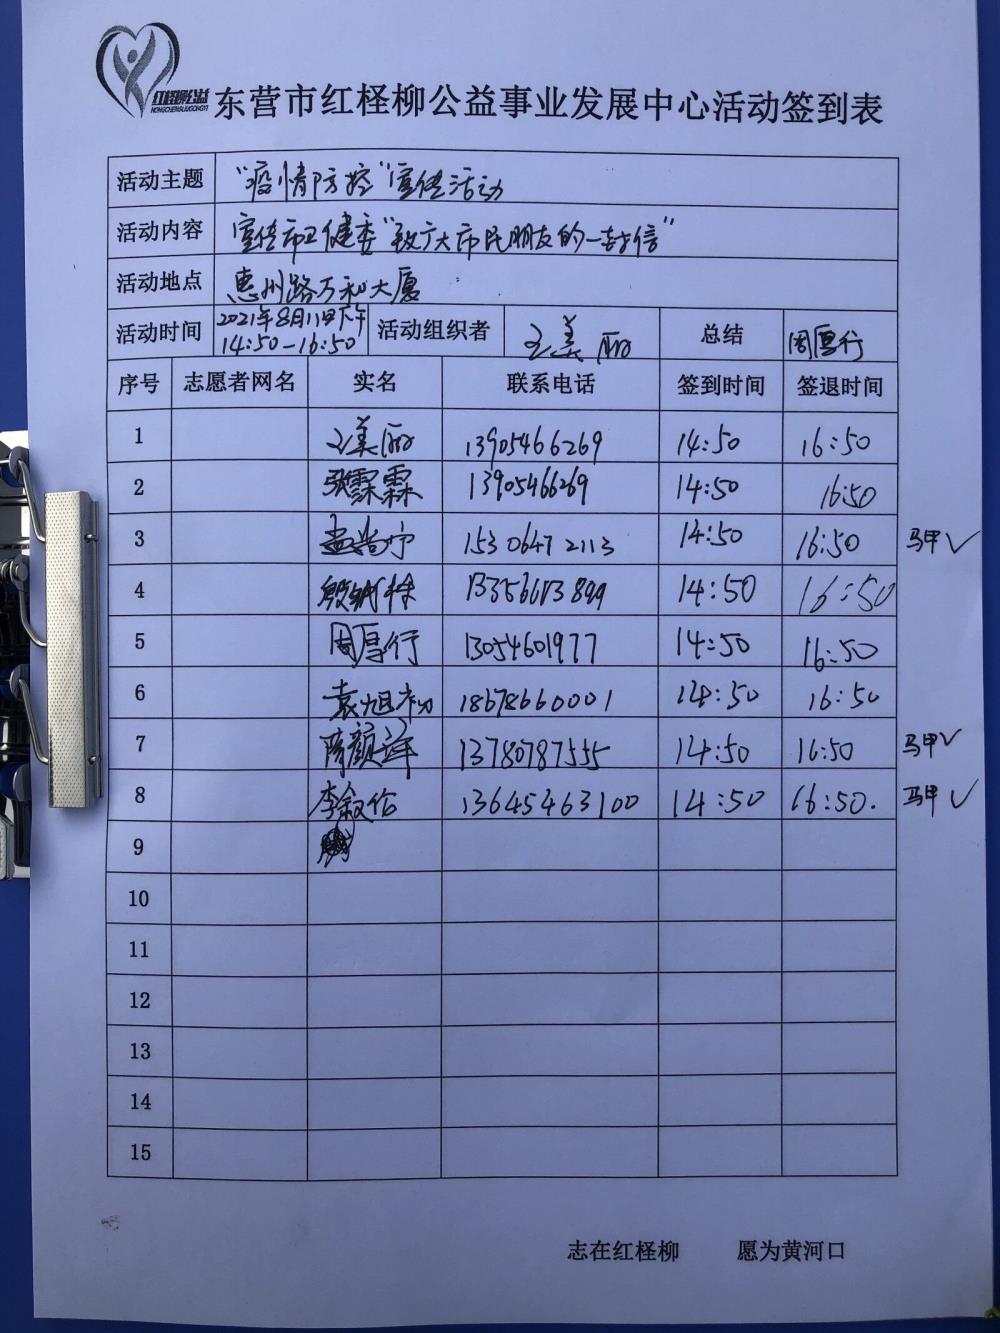 红柽柳公益
HONGCHENGLIUGONGYI
东营市红柽柳公益事业发展中心活动签到表
活动主题 “疫情防控”宣传活动
活动内容 宣传市卫健委“致广大市民朋友的一封信”
活动地点 惠州路万和大厦
活动时间 2021年8月11日下午 14:50-16:50 活动组织者 王美丽 总结 周厚行
序号 志愿者网名 实名 联系电话 签到时间 签退时间
1 王美丽 13905466269 14:50 16:50
2 张霖霖 13905466269 14:50 16:50
3 孟尚宁 15306472113 14:50 16:50 马甲✓
4 14:50 16:50
5 周厚行 13054601977 14:50 16:50
6 袁旭初 18678660001 14:50 16:50
7 隋颜祥 13780787555 14:50 16:50 马甲✓
8 李叙伦 13645463100 14:50 16:50. 马甲✓
9
10
11
12
13
14
15
志在红柽柳 愿为黄河口